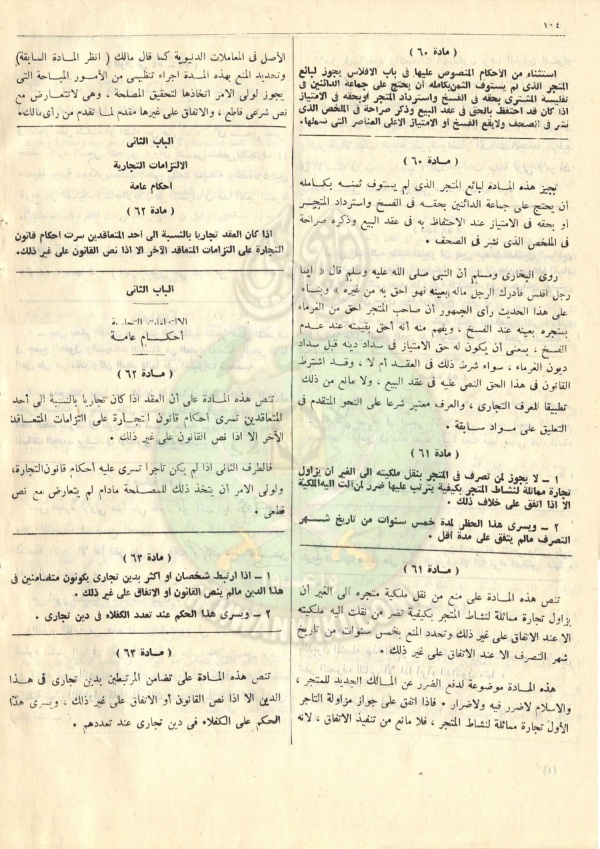 ١٠٤
( مادة ٦٠ )
استثناء من الأحكام المنصوص عليها فى باب الافلاس يجوز لبائع
المتجر الذى لم يستوف الثمن بكامله أن يحتج على جماعة الدائنين فى
تفليسة المشترى بحقه فى الفسخ واسترداد المتجر أو بحقه فى الامتياز
اذا كان قد احتفظ بالحق فى عقد البيع وذكر صراحة فى الملخص الذى
نشر فى الصحف ولا يقع الفسخ أو الامتياز الا على العناصر التى شملها.
( مادة ٦٠ )
تجيز هذه المادة لبائع المتجر الذى لم يستوف ثمنه بكامله
أن يحتج على جماعة الدائنين بحقه فى الفسخ واسترداد المتجر
أو بحقه فى الامتياز عند الاحتفاظ به فى عقد البيع وذكره صراحة
فى الملخص الذى نشر فى الصحف .
روى البخارى ومسلم أن النبى صلى الله عليه وسلم قال « ايما
رجل افلس فأدرك الرجل ماله بعينه فهو احق به من غيره » وبناء
على هذا الحديث رأى الجمهور أن صاحب المتجر احق من الغرماء
بمتجره بعينه عند الفسخ ، ويفهم منه أنه أحق بقيمته عند عدم
الفسخ ، بمعنى أن يكون له حق الامتياز فى سداد دينه قبل سداد
ديون الغرماء ، سواء شرط ذلك فى العقد أم لا ، وقد اشترط
القانون فى هذا الحق النص عليه فى عقد البيع ، ولا مانع من ذلك
تطبيقا للعرف التجارى ، والعرف معتبر شرعا على النحو المتقدم فى
التعليق على مواد سابقة .
( مادة ٦١ )
١ – لا يجوز لمن تصرف فى المتجر بنقل ملكيته الى الغير أن يزاول
تجارة مماثلة لنشاط المتجر بكيفية يترتب عليها ضرر لمن آلت اليه الملكية
الا اذا اتفق على خلاف ذلك .
٢ – ويسرى هذا الحظر لمدة خمس سنوات من تاريخ شهر
التصرف مالم يتفق على مدة أقل .
( مادة ٦١ )
تنص هذه المادة على منع من نقل ملكية متجره الى الغير أن
يزاول تجارة مماثلة لنشاط المتجر بكيفية تضر من نقلت اليه ملكيته
الا عند الاتفاق على غير ذلك وتحدد المنع بخمس سنوات من تاريخ
شهر التصرف الا عند الاتفاق على غير ذلك .
هذه المادة موضوعة لدفع الضرر عن المالك الجديد للمتجر ،
والاسلام لاضرر فيه ولاضرار . فاذا اتفق على جواز مزاولة التاجر
الأول تجارة مماثلة لنشاط المتجر ، فلا مانع من تنفيذ الاتفاق ، لانه
الأصل فى المعاملات الدنيوية كما قال مالك ( انظر المادة السابقة )
وتحديد المنع بهذه المدة اجراء تنظيمى من الأمور المباحة التى
يجوز لولى الامر اتخاذها لتحقيق المصلحة ، وهى لاتتعارض مع
نص شرعى قاطع ، والاتفاق على غيرها مقدم لما تقدم من رأى مالك.
الباب الثانى
الالتزامات التجارية
احكام عامة
( مادة ٦٢ )
اذا كان العقد تجاريا بالنسبة الى أحد المتعاقدين سرت احكام قانون
التجارة على التزامات المتعاقد الآخر الا اذا نص القانون على غير ذلك.
الباب الثانى
الالتزامات التجارية
أحكام عامة
( مادة ٦٢ )
تنص هذه المادة على أن العقد اذا كان تجاريا بالنسبة الى أحد
المتعاقدين تسرى أحكام قانون التجارة على التزامات المتعاقد
الآخر الا اذا نص القانون على غير ذلك .
فالطرف الثانى اذا لم يكن تاجرا تسرى عليه أحكام قانون التجارة،
ولولى الامر أن يتخذ ذلك للمصلحة مادام لم يتعارض مع نص
قطعى .
( مادة ٦٣ )
١ – اذا ارتبط شخصان او اكثر بدين تجارى يكونون متضامنين فى
هذا الدين مالم ينص القانون او الاتفاق على غير ذلك .
٢ – ويسرى هذا الحكم عند تعدد الكفلاء فى دين تجارى .
( مادة ٦٣ )
تنص هذه المادة على تضامن المرتبطين بدين تجارى فى هذا
الدين الا اذا نص القانون أو الاتفاق على غير ذلك ، ويسرى هذا
الحكم على الكفلاء فى دين تجارى عند تعددهم .
(٨)